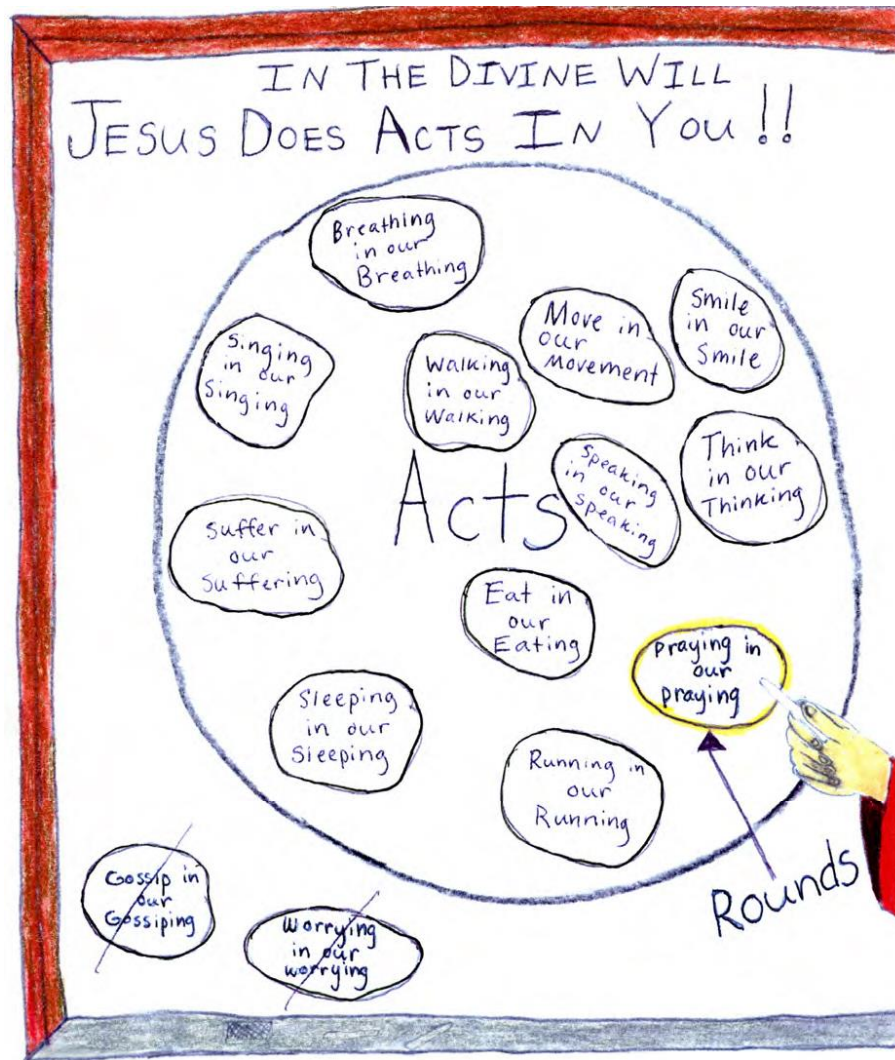 IN THE DIVINE WILL
JESUS DOES ACTS IN YOU!!
Breathing
in our
Breathing
Singing
in our
Singing
Walking
in our
Walking
Move in
our
Movement
Smile
in our
Smile
Think
in our
Thinking
Speaking
in our
Speaking
Acts
Suffer in
our
Suffering
Eat in
our
Eating
Praying in
our
praying
Sleeping
in our
Sleeping
Running in
our
Running
Rounds
Gossip in
our
Gossiping
Worrying
in our
worrying